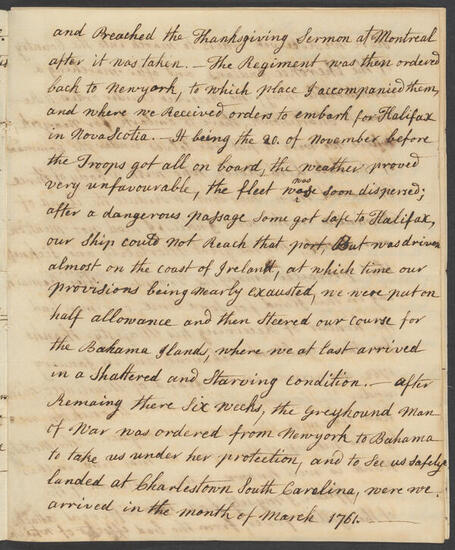 and Preached the Thanksgiving Sermon at Montreal
after it was taken. — The Regiment was then ordered
back to Newyork, to which place I accompanied them,
and where we Received orders to embark for Halifax
in Nova Scotia. — It being the 20. of November before
the Troops got all on board, the weather proved
very unfavourable, the fleet was soon dispersed;
after a dangerous passage some got safe to Halifax,
our Ship could not Reach that port But was driven
almost on the coast of Ireland, at which time our
provisions being nearly exausted, we were put on
half allowance and then steered our course for
the Bahama Ilands, where we at last arrived
in a Shattered and Starving condition. — after
Remaing there Six weeks, the Greyhound Man
of War was ordered from Newyork to Bahama
to take us under her protection, and to See us Safely
landed at Charlestown South Carolina, were we
arrived in the month of March 1761. —